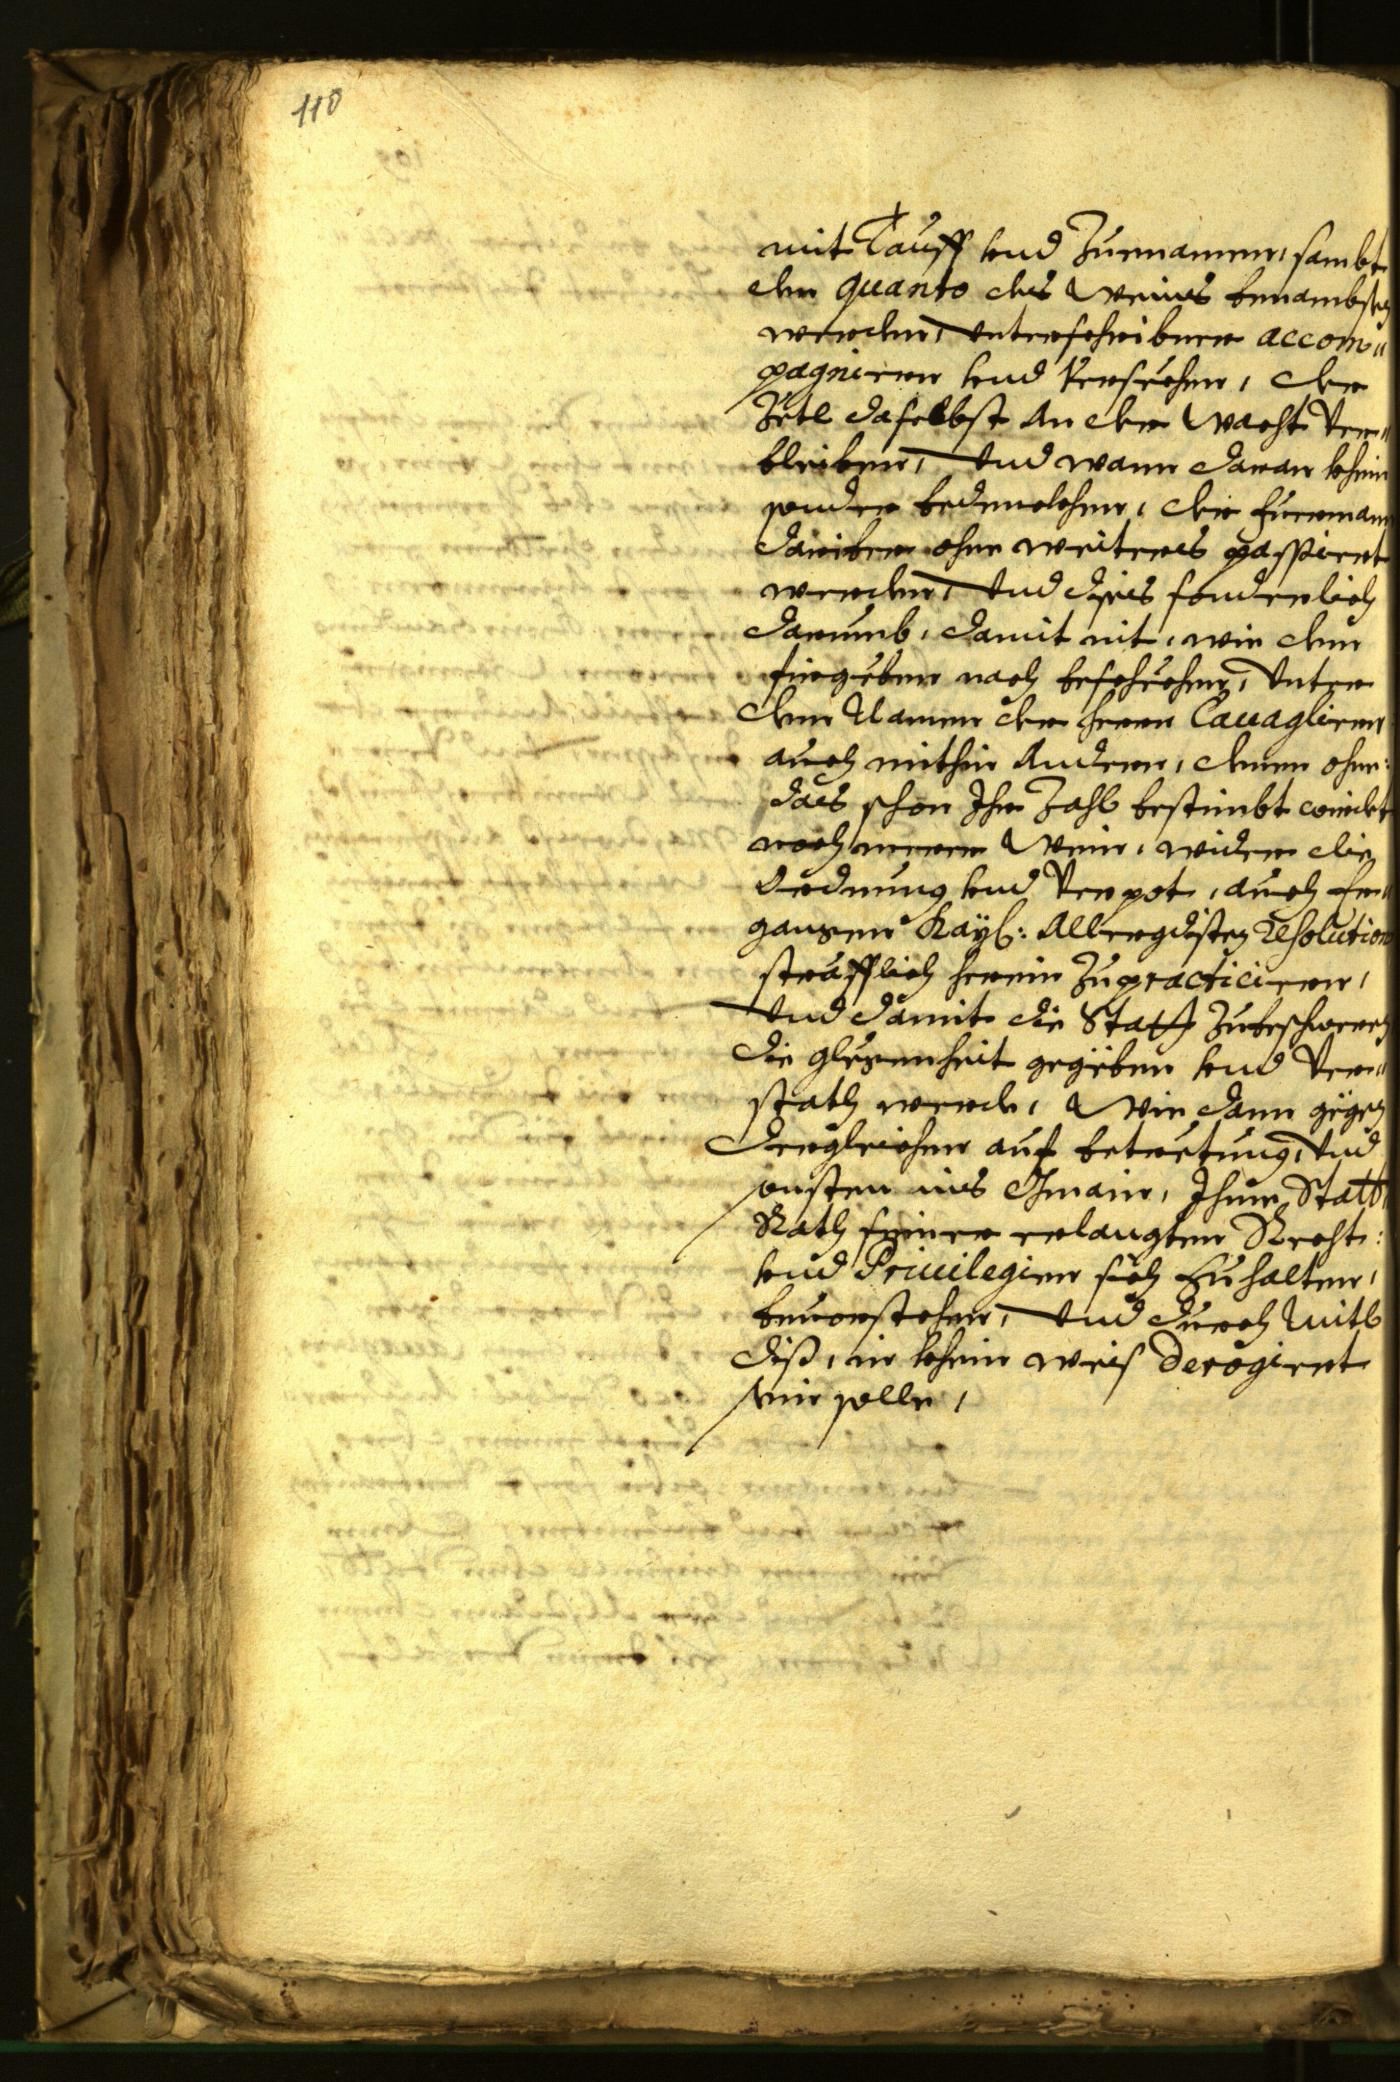 110
mit Tauff vnd Zuenamen, sambt
den quanto des Weines benambsten
werden, Unterschribnen accom„
pagnieren vnd Versechen, der
Zetl daselbst an der Wacht Ver„
bleiben, Und wann daran khein
sonder bedenckhen, die fuermann
darüber ohne weiters passiert
werden, Und dises sonderlich
darumb, damit nit, wie dem
fürgeben nach beschechen, Unter
dem Namen der herrn Cauaglieren
auch mithin Andern, denen ohne:
das schon Ihr Zahl bestimbt wirdet
noch merern Wein, wider die
Ordnung vnd Verpot, auch Er„
gangner Kayß: Allergdisten Resolution
straffflich herein Zupracticieren,
Und damit die Statt Zubeschweren
die glegenheit gegeben vnd Ver„
statt werde, Wie dann gegen
dergleichen auf betrettung, Und
sonsten ins Gmain, Ihme Statt
Rath seiner erlangten Recht:
vnd Priuilegien sich Zuhalten,
beuorstehen, Und durch
diß, in khein weis derogiert
sein solle,